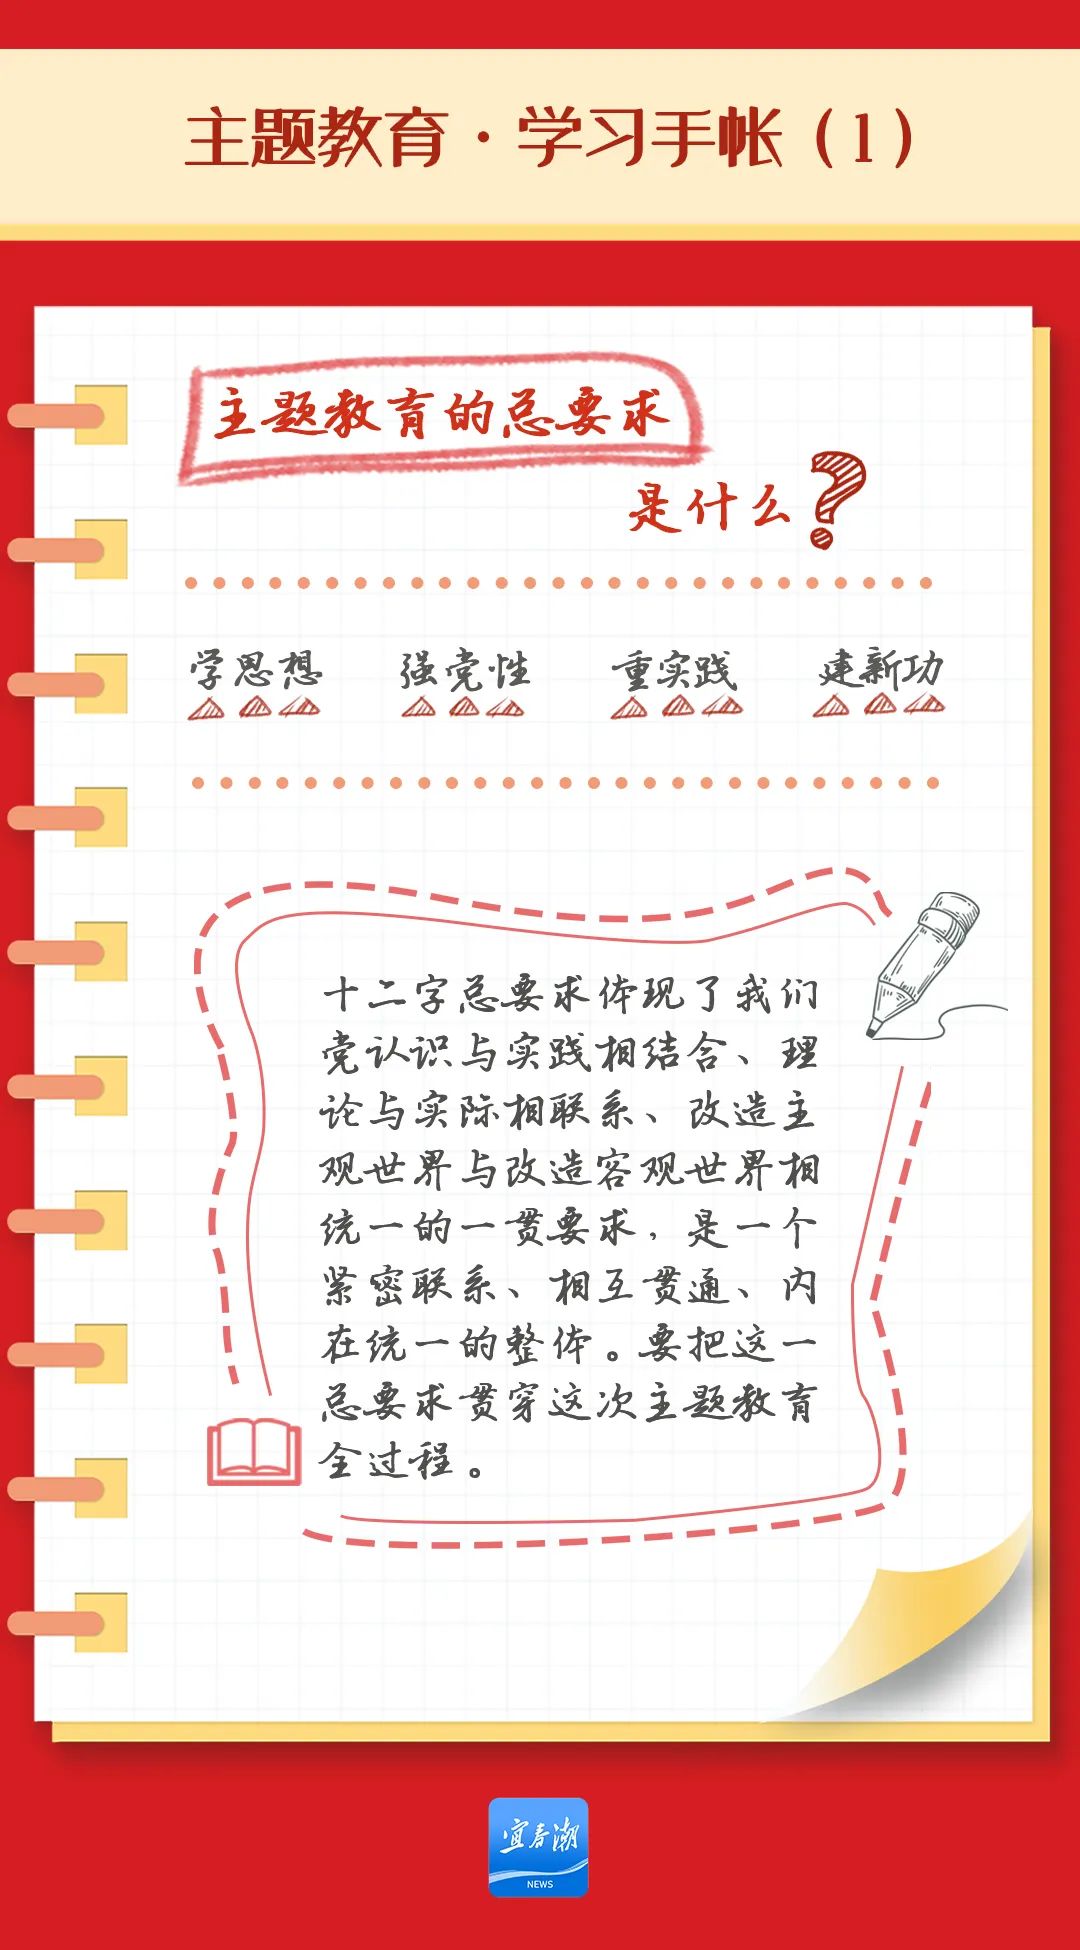 主题教育·学习手帐（1）
主题教育的总要求
是什么?
学思想 强党性 重实践 建新功
十二字总要求体现了我们
党认识与实践相结合、理
论与实际相联系、改造主
观世界与改造客观世界相
统一的一贯要求，是一个
紧密联系、相互贯通、内
在统一的整体。要把这一
总要求贯穿这次主题教育
全过程。
宜春潮
NEWS